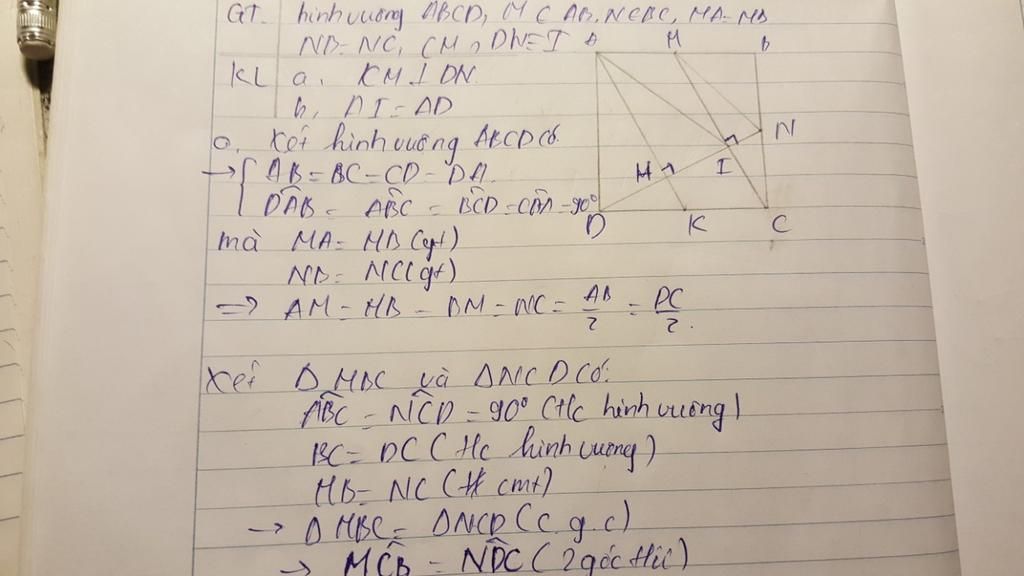 GT. hình vuông ABCD, M ∈ AB, N∈BC, MA=MB
NB=NC, CM ∩ DN=I
KL a. KM⊥DN
b, AI=AD
a. Xét hình vuông ABCD có
→ { AB=BC=CD=DA.
DAB = ABC = BCD=CDA=90°
mà MA=MB(gt)
NB=NC(gt)
=> AM=MB=BM=NC= AB/2 = DC/2.
Xét Δ MBC và ΔNCD có:
ABC = NCD = 90° (t/c hình vuông)
BC= DC (t/c hình vuông)
MB= NC (cmt)
→ Δ MBC= ΔNCD (c.g.c)
→ MCB = NDC (2 góc t/ư)
A M B
N
H I
D K C